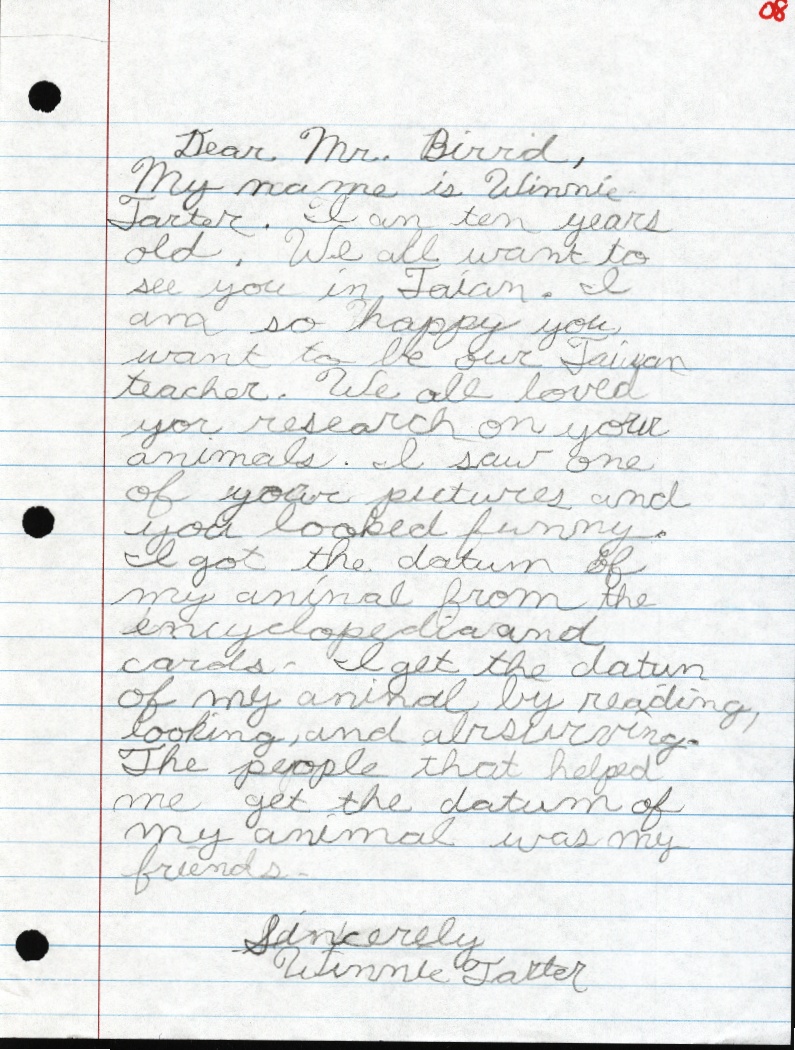 08
Dear Mr. Birrd,
My name is Winnie
Tarter. I an ten years
old. We all want to
see you in Taian. I
am so happy you
want to be our Taiyan
teacher. We all loved
yor research on your
animals. I saw one
of your pictures and
you looked funny.
I got the datum of
my aninal from the
encyclopedia and
cards. I get the datum
of my aninal by reading,
looking, and abrsurving.
The people that helped
me get the datum of
my animal was my
friends.
Sincerely
Winnie Tarter